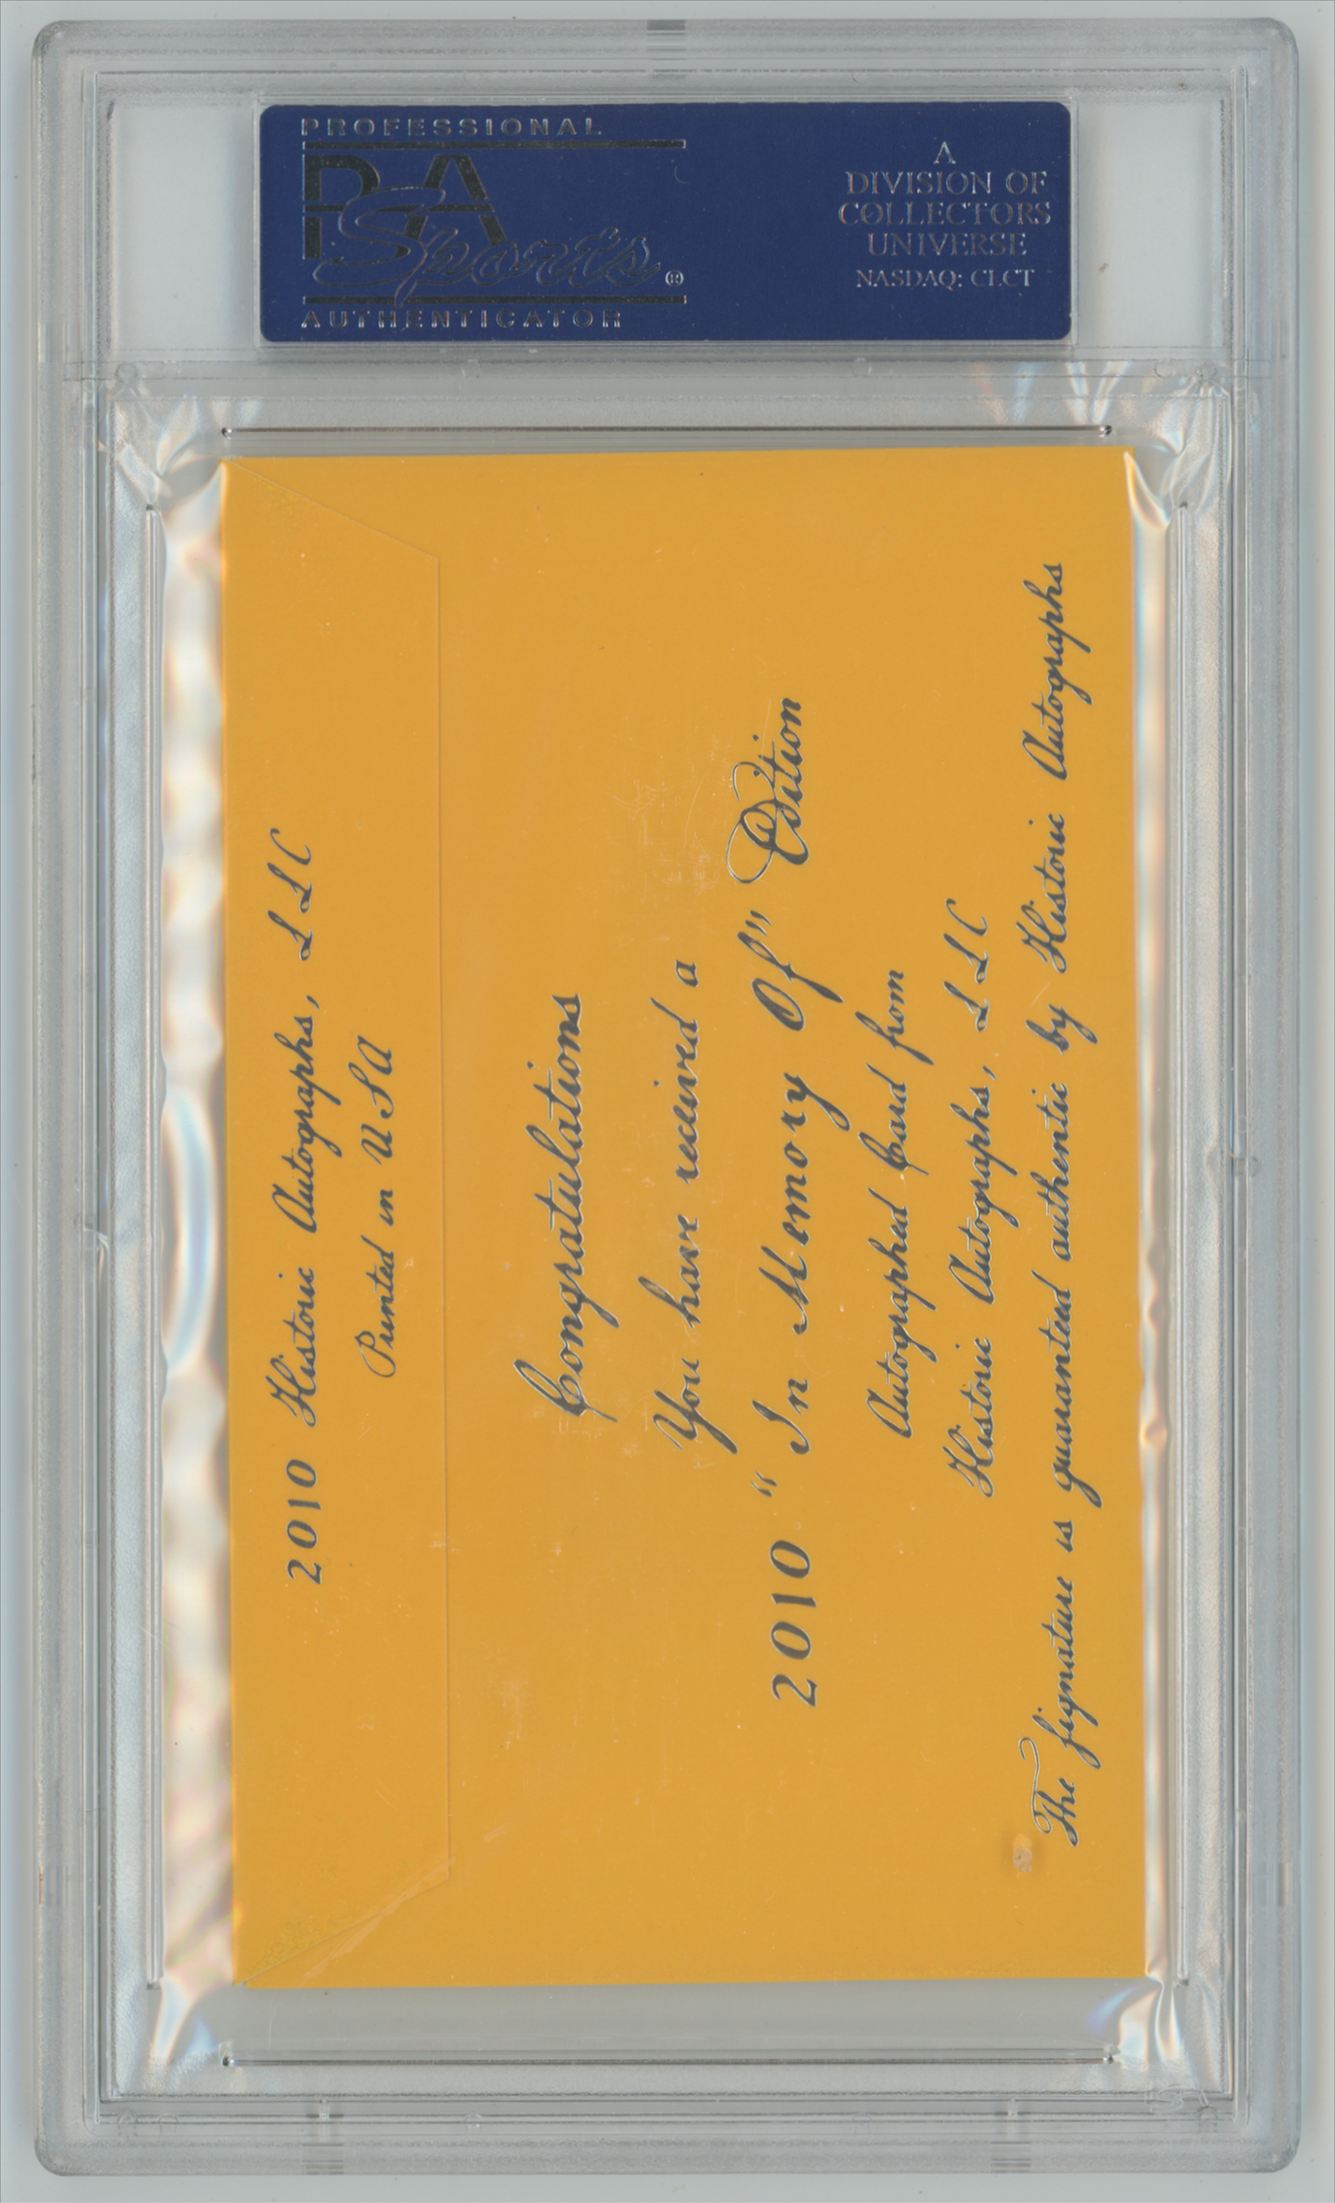 PROFESSIONAL
PSA
Sports®
AUTHENTICATOR
A
DIVISION OF
COLLECTORS
UNIVERSE
NASDAQ: CLCT
2010 Historic Autographs, LLC
Printed in USA
Congratulations
You have received a
2010 "In Memory Of" Edition
Autographed Card from
Historic Autographs, LLC
The signature is guaranteed authentic by Historic Autographs